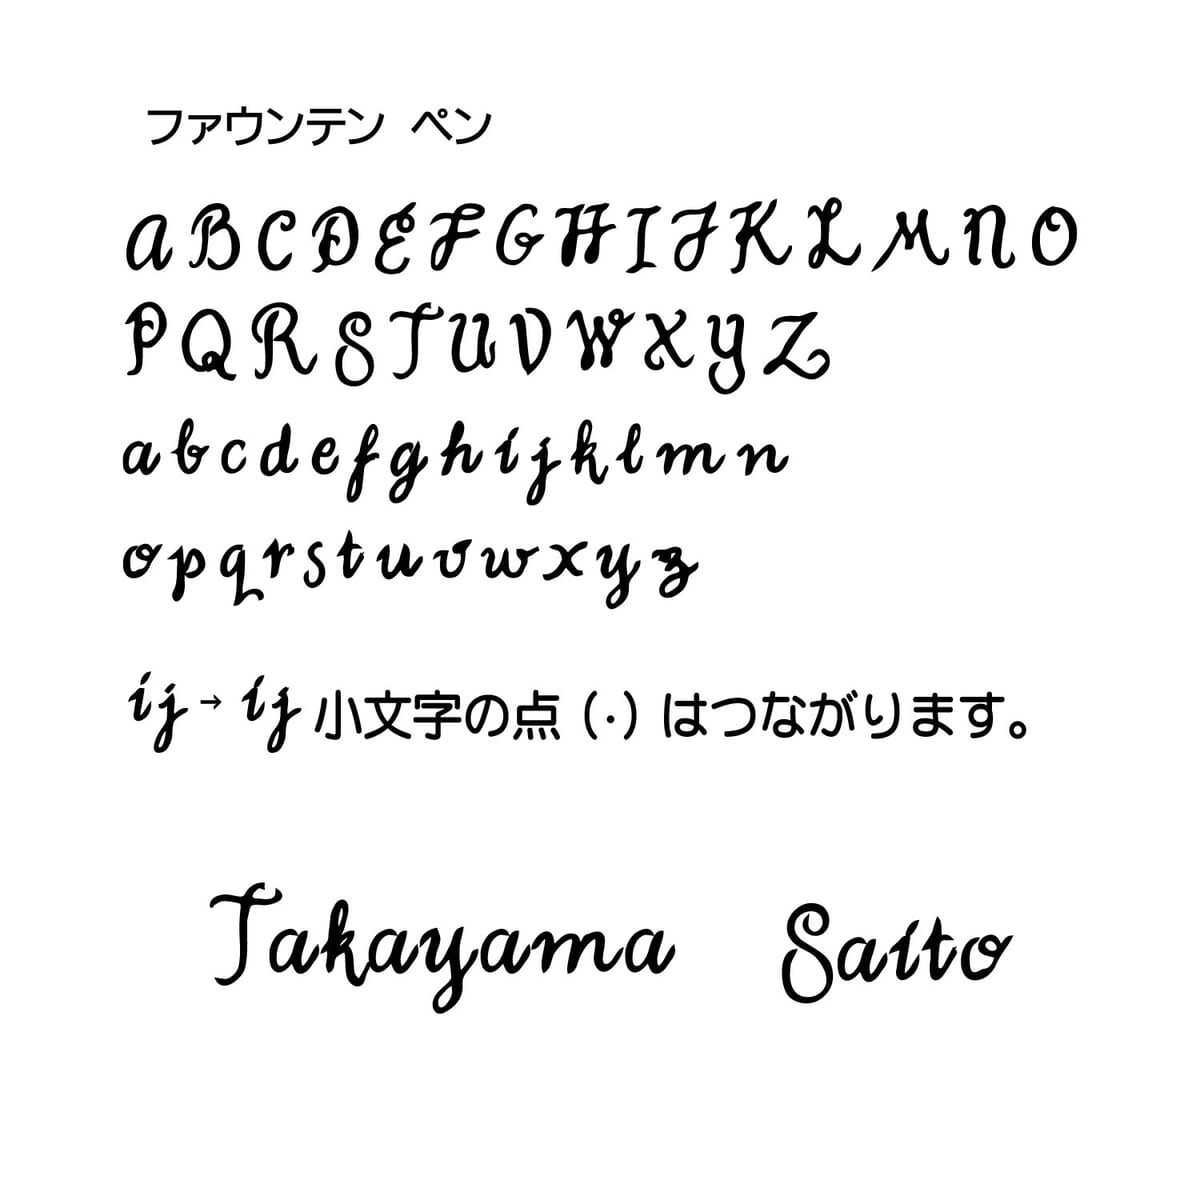 ファウンテン ペン
A B C D E F G H I J K L M N O
P Q R S T U V W X Y Z
a b c d e f g h i j k l m n
o p q r s t u v w x y z
ij→ij 小文字の点(・)はつながります。
Takayama Saito